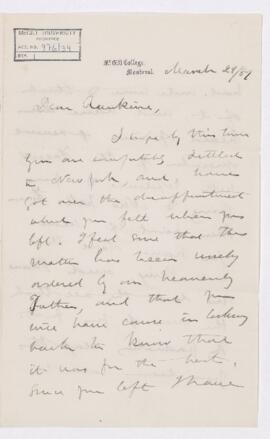 McGILL UNIVERSITY
ARCHIVES
ACC. NO. 976/24
REF.
McGill College,
Montreal,
March 29/87
Dear
I hope by this time
you are comfortably settled
in New York and have
got over the disappointment
which you felt when you
left. I feel sure that the
matter has been wisely
ordered by our heavenly
Father, and that you
will have cause in looking
back to know that
it was for the best.
Since you left I have